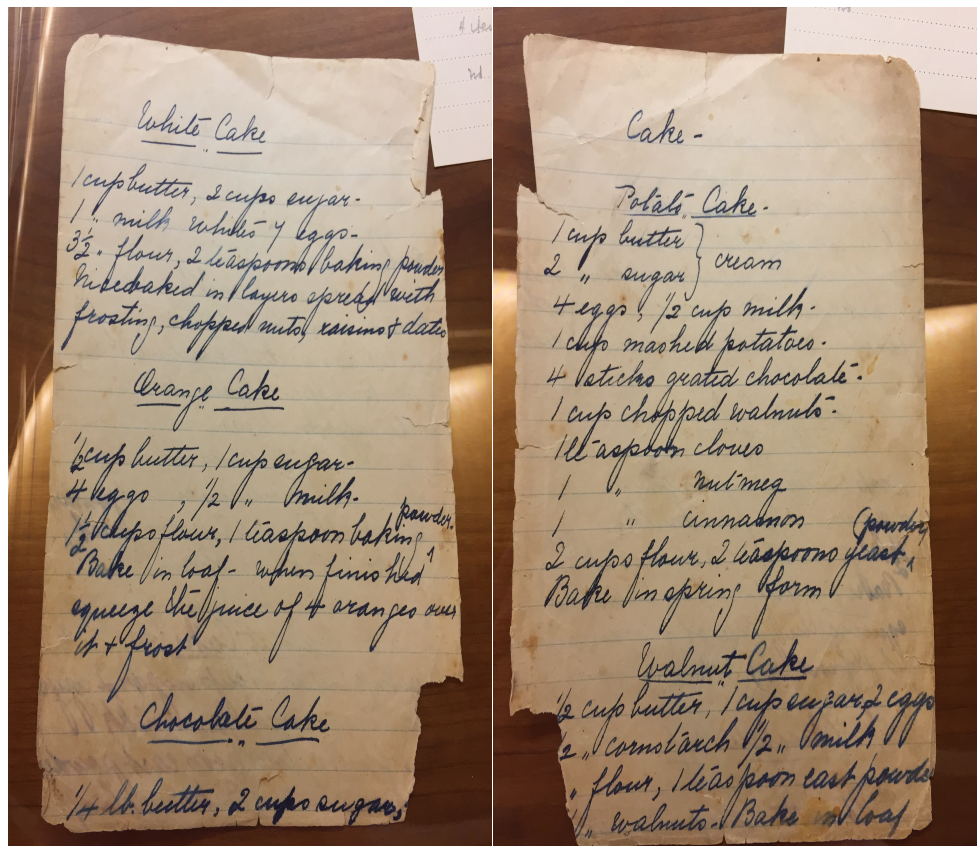 White Cake
1 cup butter, 2 cups sugar-
1 " milk whites 7 eggs-
3½ " flour, 2 teaspoons baking powder
Nice baked in layers spread with
frosting, chopped nuts, raisins & dates
Orange Cake
½ cup butter, 1 cup sugar-
4 eggs , ½ " milk-
1½ cups flour, 1 teaspoon baking powder.
Bake in loaf- when finished
squeeze the juice of 4 oranges over
it & frost
Chocolate Cake
¼ lb. butter, 2 cups sugar,
Cake-
Potato Cake-
1 cup butter } cream
2 " sugar
4 eggs, ½ cup milk-
1 cup mashed potatoes-
4 sticks grated chocolate-
1 cup chopped walnuts-
1 teaspoon cloves
1 " nutmeg
1 " cinnamon
2 cups flour, 2 teaspoons yeast (powder)
Bake in spring form
Walnut Cake
½ cup butter, 1 cup sugar, 2 eggs
2 " cornstarch ½ " milk
" flour, 1 teaspoon east powder
1 " walnuts- Bake in loaf